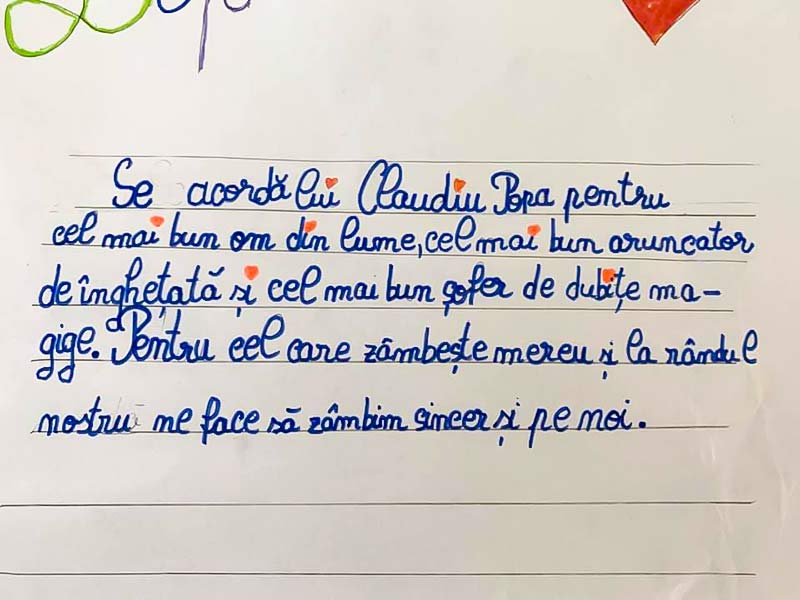 Se acordă lui Claudiu Popa pentru
cel mai bun om din lume, cel mai bun aruncator
de înghețată și cel mai bun șofer de dubițe ma-
gige. Pentru cel care zâmbește mereu și la rândul
nostru ne face să zâmbim sincer și pe noi.